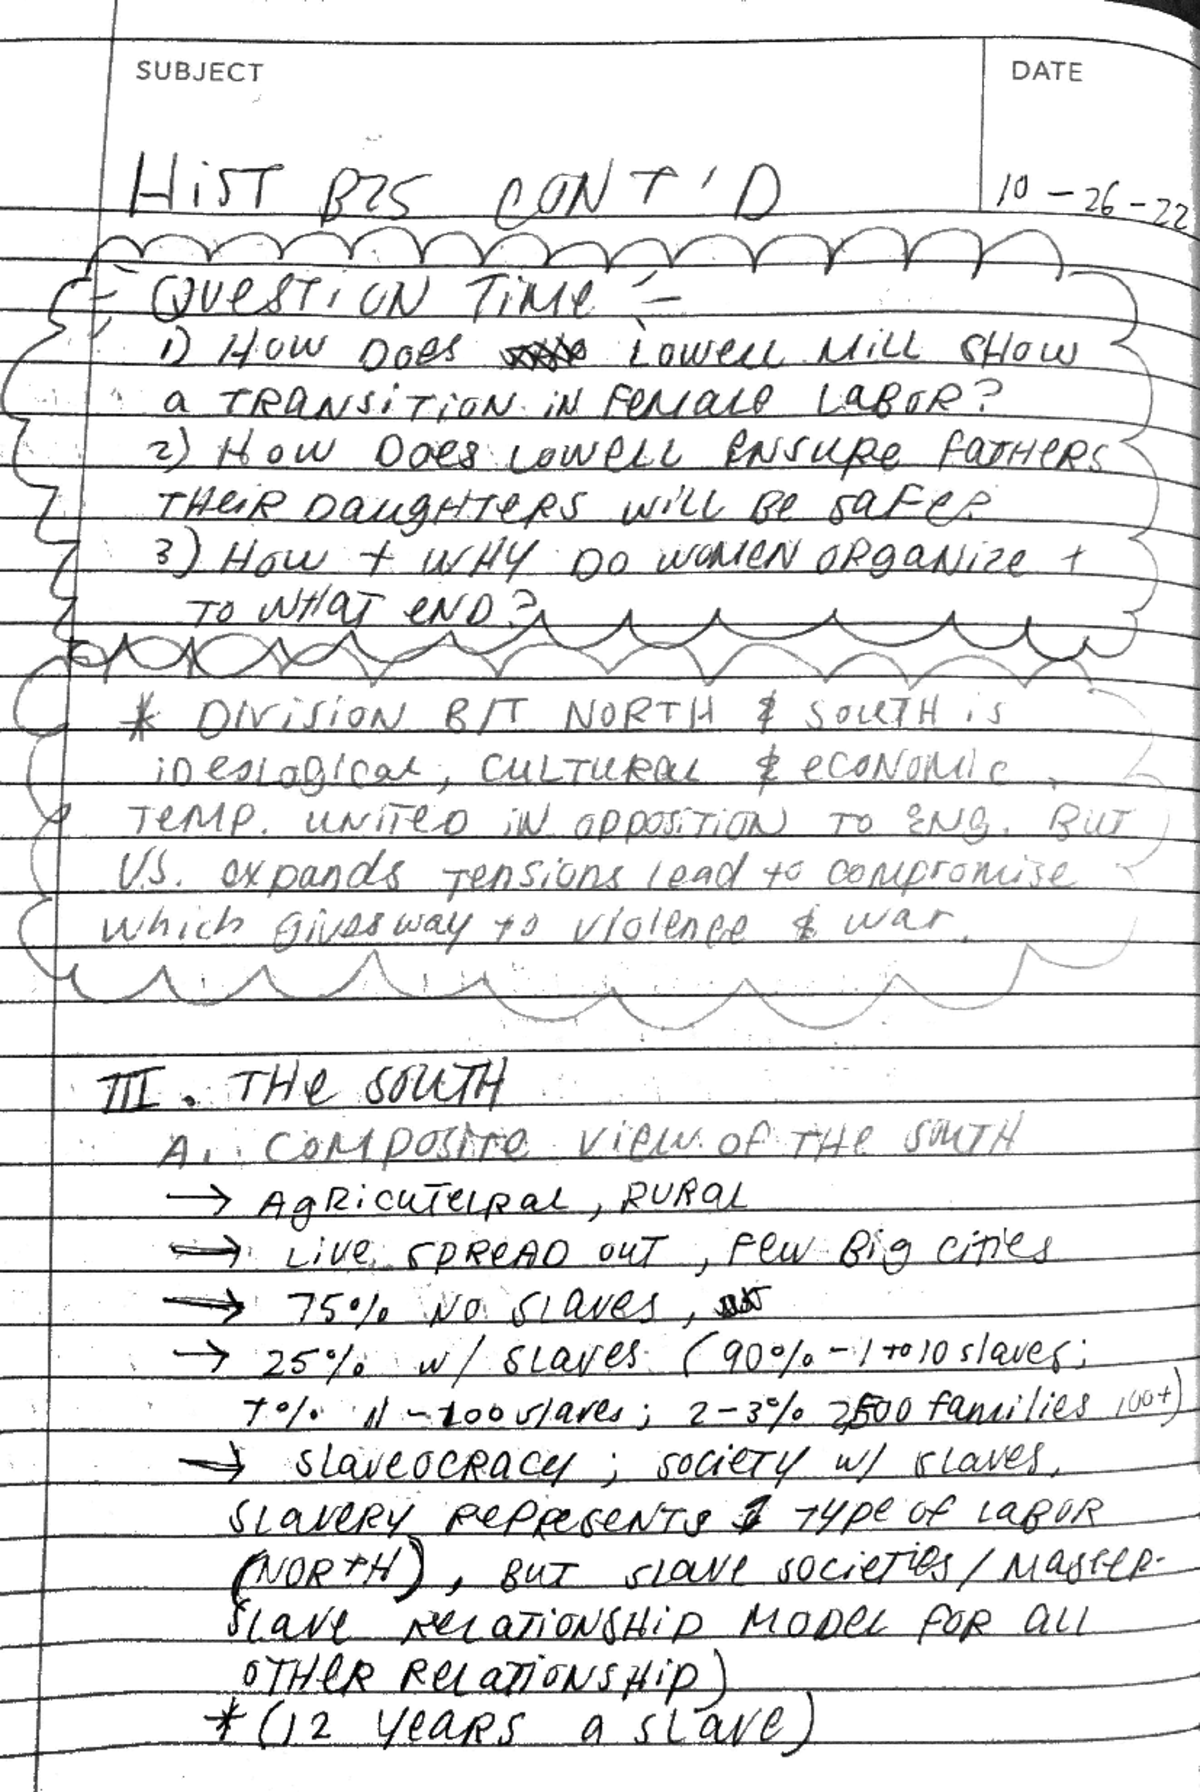 SUBJECT
DATE
HIST B25 CONT'D
10-26-22
- QUESTION TIME -
1) HOW DOES LOWELL MILL SHOW
a TRANSITION IN FEMALE LABOR?
2) HOW DOES LOWELL ENSURE FATHERS
THEIR DAUGHTERS WILL BE SAFE?
3) HOW + WHY DO WOMEN ORGANIZE +
TO WHAT END?
* DIVISION B/T NORTH & SOUTH is
IDEOLOGICAL, CULTURAL & ECONOMIC.
TEMP. UNITED IN OPPOSITION TO ENG. BUT
U.S. expands tensions lead to compromise
which gives way to violence & war.
III. THE SOUTH
A. COMPOSITE VIEW OF THE SOUTH
→ AGRICUTEURAL, RURAL
→ LIVE SPREAD OUT, FEW BIG CITIES
→ 75% NO SLAVES,
→ 25% w/ SLAVES (90% - 1 to 10 slaves;
7% 11-100 slaves; 2-3% 2,500 families 100+)
→ SLAVEOCRACY; SOCIETY w/ SLAVES,
SLAVERY REPRESENTS 1 TYPE OF LABOR
(NORTH), BUT SLAVE SOCIETIES / MASTER-
SLAVE RELATIONSHIP MODEL FOR ALL
OTHER RELATIONSHIP)
* (12 YEARS A SLAVE)